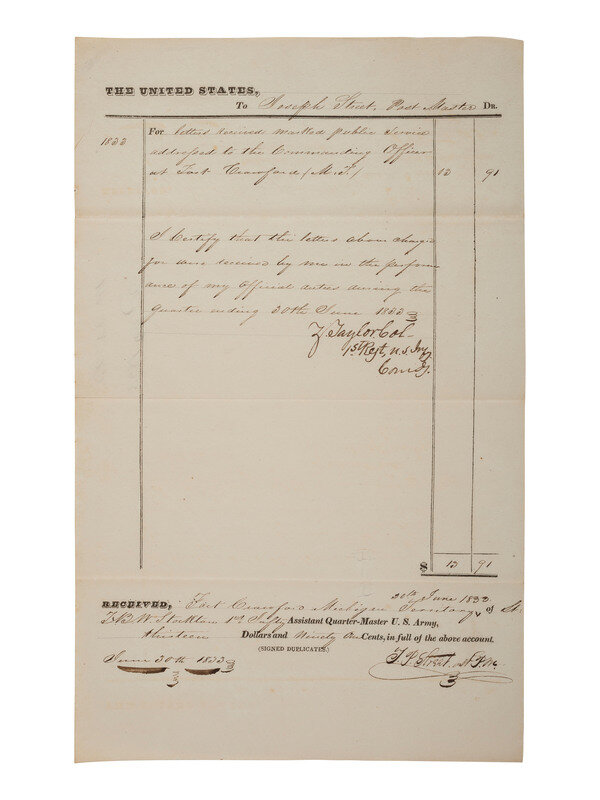 THE UNITED STATES,
To Joseph Street, Post Master DR.
1833
For letters received marked public Service
addressed to the Commanding Officer
at Fort Crawford (M.T.) 13 91
I Certify that the letters above charged
for were received by me in the perform
ance of my Official duties during the
Quarter ending 30th June 1833
Z. Taylor Col-
1st Regt, U.S. Inf
Comdg.
$ 13 91
RECEIVED, Fort Crawford Michigan Territory 30th June 1833 of Lt
T.B.W. Stockton 1st Infy Assistant Quarter-Master U. S. Army,
thirteen Dollars and Ninety One Cents, in full of the above account.
(SIGNED DUPLICATES.)
June 30th 1833 Street, P.M.